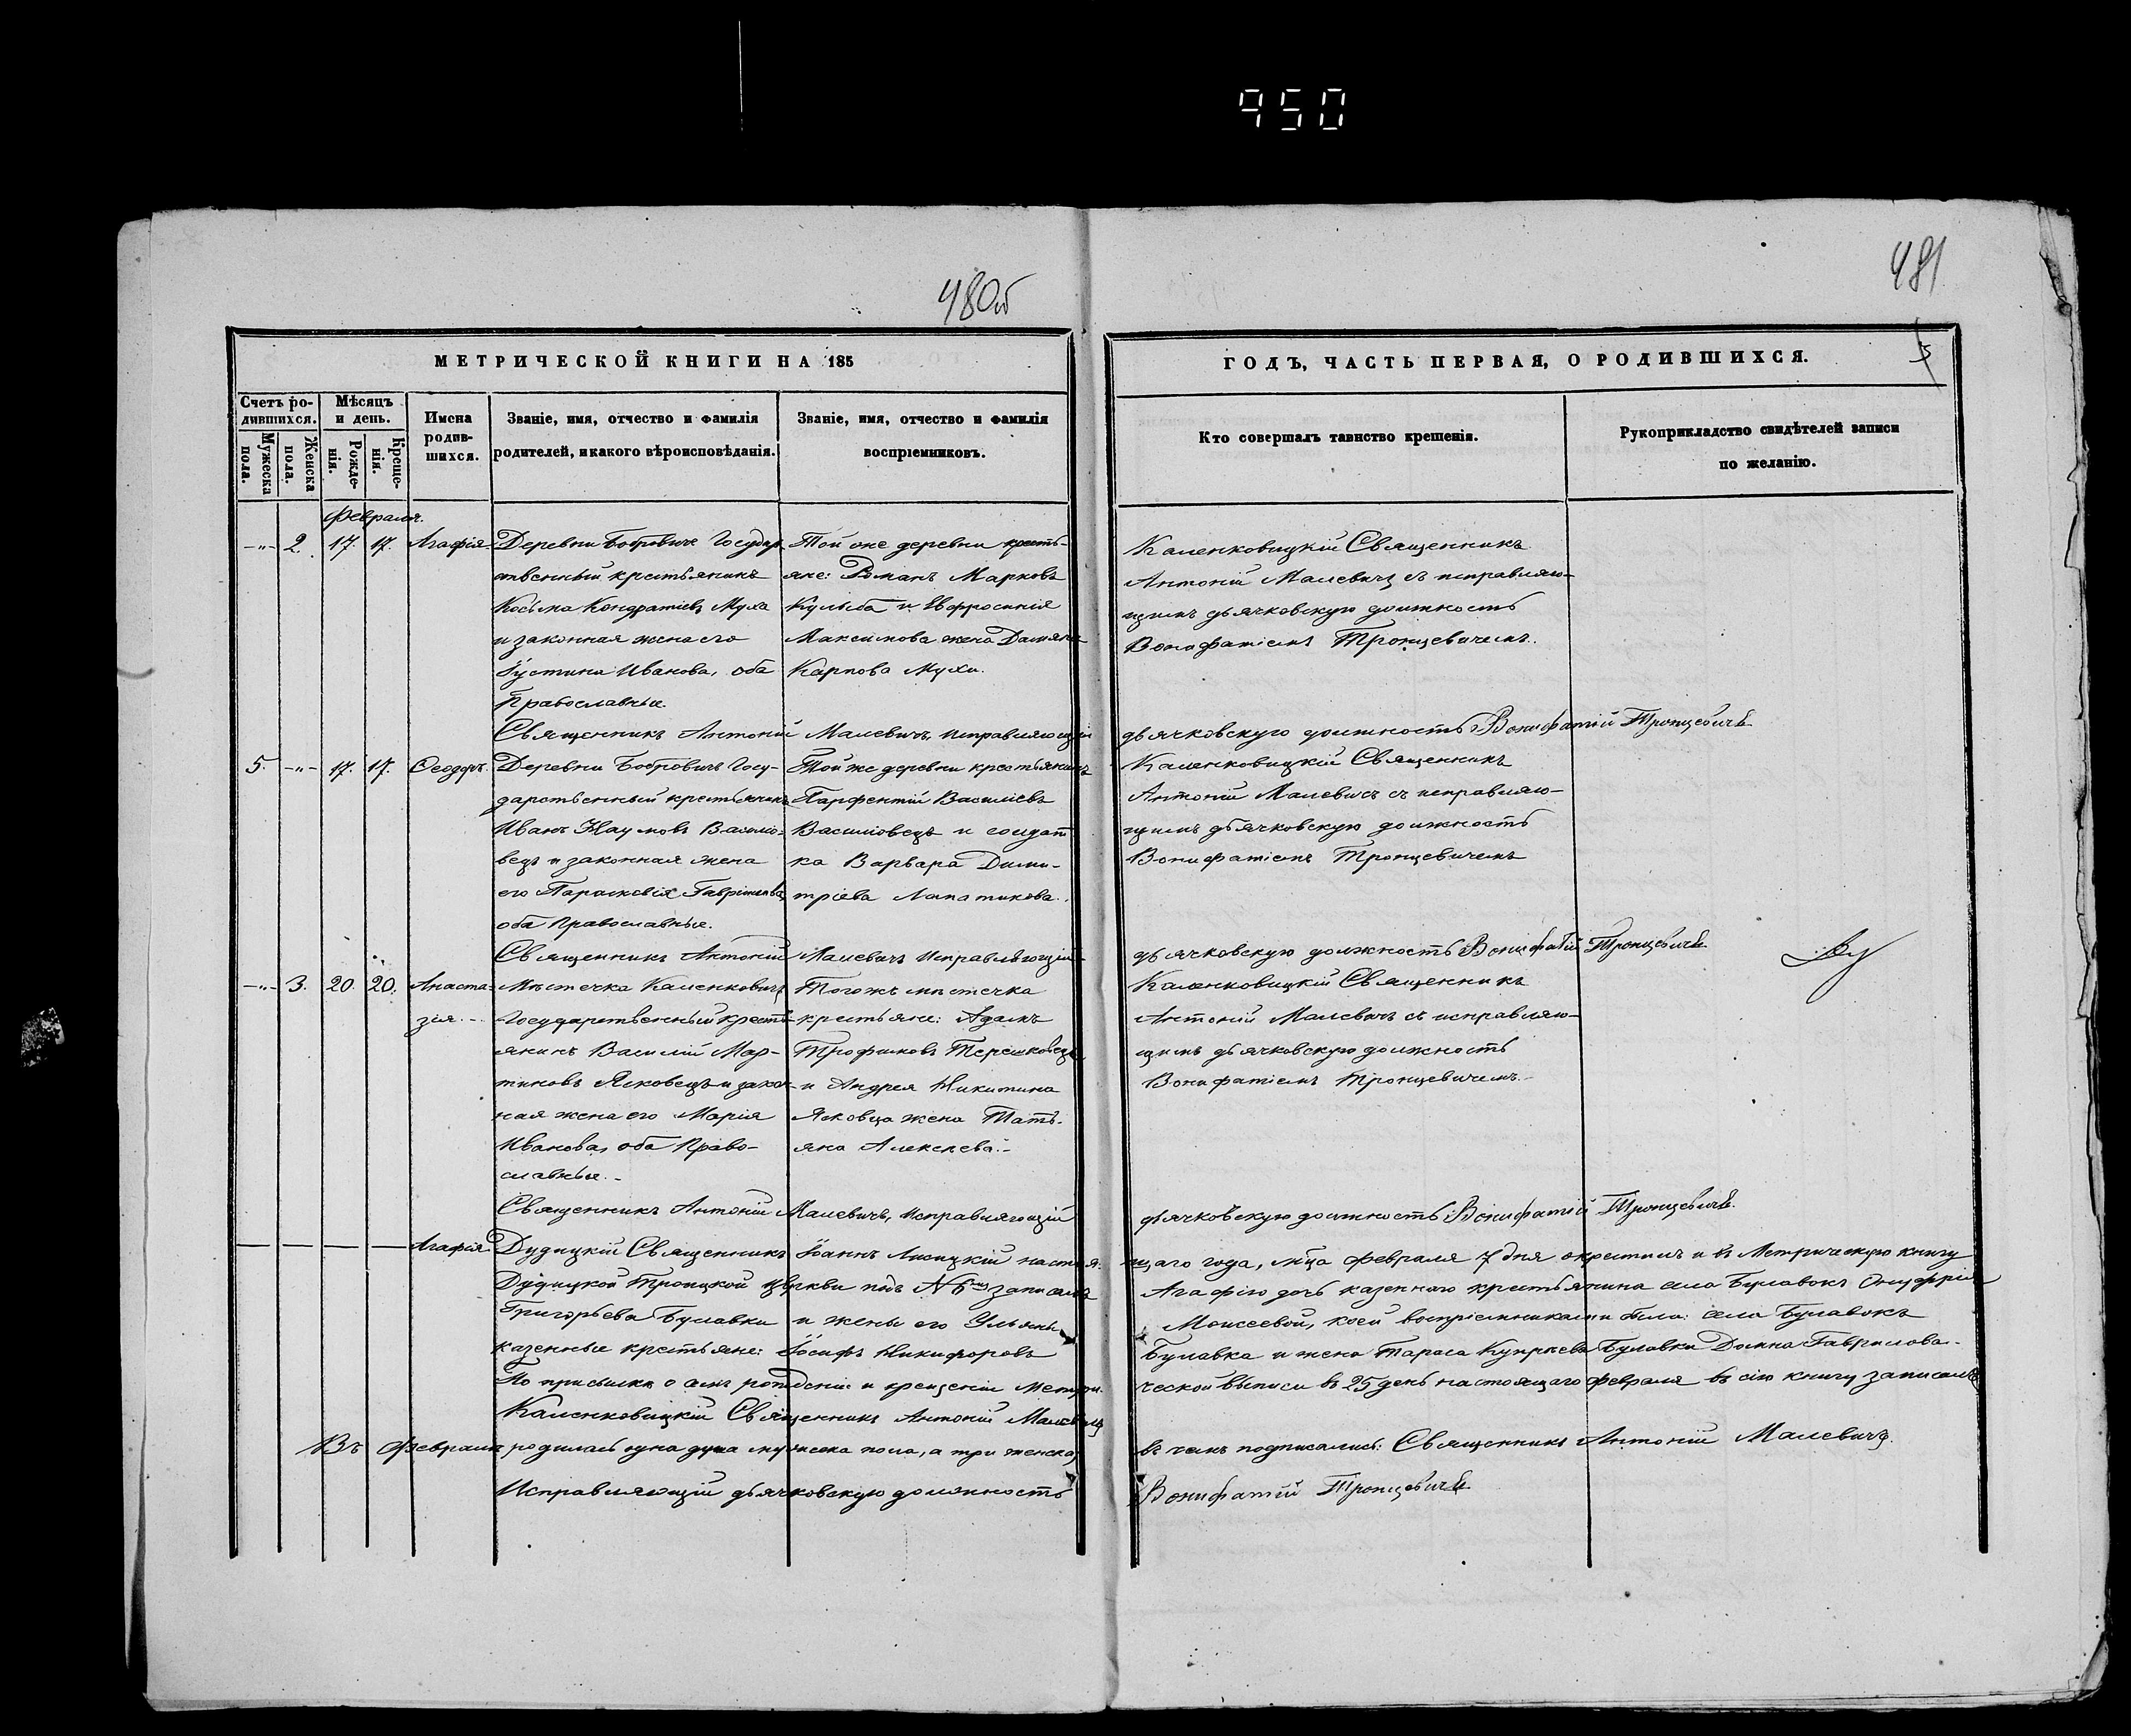 950
480об
481
МЕТРИЧЕСКОЙ КНИГИ НА 185
ГОДЪ, ЧАСТЬ ПЕРВАЯ, О РОДИВШИХСЯ.
Счетъ ро-
дившихся.
Мужеска
пола.
Женска
пола.
Мѣсяцъ
и день.
Рожде-
нія.
Креще-
нія.
Имена
родив-
шихся.
Званіе, имя, отчество и фамилія
родителей, и какого вѣроисповѣданія.
Званіе, имя, отчество и фамилія
воспріемниковъ.
Кто совершалъ таинство крещенія.
Рукоприкладство свидѣтелей записи
по желанію.
Февраля.
-"- 2. 17. 17. Агафія
Деревни Бобровичь Государ-
ственный крестьянинъ
Косьма Кондратіевъ Муха
и законная жена его
Іустина Иванова, оба
Православные.
Той же деревни кресть-
яне: Романъ Марковъ
Кульба и Евфросинія
Максимова жена Даміяна
Карпова Мухи.
Каленковицкій Священникъ
Антоній Малевичъ съ исправляю-
щимъ дьячковскую должность
Вонифатіемъ Тронцевичемъ.
Священникъ Антоній Малевичъ, исправляющій дьячковскую должность Вонифатій Тронцевичъ
5. -"- 17. 17. Ѳеодоръ.
Деревни Бобровичь Госу-
дарственный крестьянинъ
Иванъ Наумовъ Васило-
вецъ и законная жена
его Параскевія Гавріилова
оба Православные.
Той же деревни крестьянинъ
Парфентій Василіевъ
Василовецъ и солдат
ка Варвара Дими-
тріева Лапатикова.
Каленковицкій Священникъ
Антоній Малевичъ съ исправляю-
щимъ дьячковскую должность
Вонифатіемъ Тронцевичемъ
Священникъ Антоній Малевичъ Исправляющій дьячковскую должность Вонифатій Тронцевичъ
-"- 3. 20. 20. Анаста-
зія.
Мѣстечка Каленковичъ
Государственный кресть-
янинъ Василій Мар-
тиновъ Ясковецъ и закон-
ная жена его Марія
Иванова, оба Право-
славные.
Тогожъ мѣстечка
крестьяне: Адамъ
Трофимовъ Терешковецъ
и Андрея Никитина
Ясковца жена Тать-
яна Алексѣева.
Каленковицкій Священникъ
Антоній Малевичъ съ исправляю-
щимъ дьячковскую должность
Вонифатіемъ Тронцевичемъ.
Священникъ Антоній Малевичъ, исправляющій дьячковскую должность Вонифатій Тронцевичъ.
Агафія. Дудицкій Священникъ Іоаннъ Лисицкій настоя- щаго года, мца февраля 7 дня окрестилъ и въ Метрическую книгу
Дудицкой Троицкой церкви подъ N 6мъ записалъ Агафію дочь казеннаго крестьянина села Булавокъ Онуфрія
Григорьева Булавки и жены его Ульяны Моисеевой, коей воспріемниками были: села Булавокъ
казенные крестьяне: Іосифъ Никифоровъ Булавка и жена Тараса Купріева Булавки Домна Гаврилова.
По присылкѣ о семъ рожденіи и крещеніи Метри- ческой выписи въ 25 день настоящаго февраля въ сію книгу записалъ
Каленковицкій Священникъ Антоній Малевичъ
Въ Февралѣ родилась одна душа мужеска пола, а три женска, въ чемъ подписались: Священникъ Антоній Малевичъ.
Исправляющій дьячковскую должность Вонифатій Тронцевичъ.